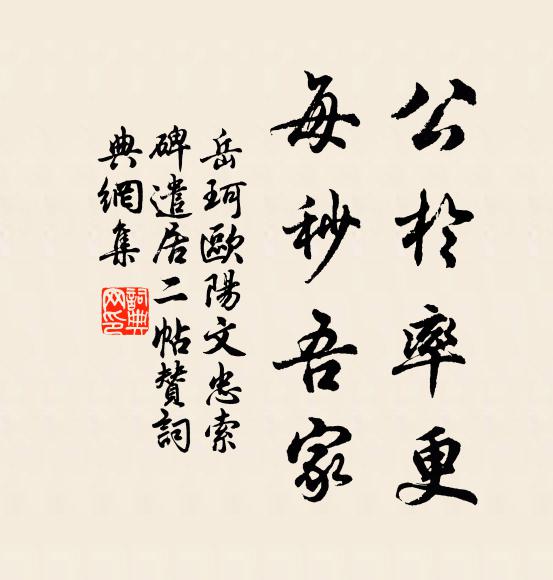 公於率更
每秒吾家
岳珂歐陽文忠索
碑遣居二帖贊詞
典網集
詞典网印